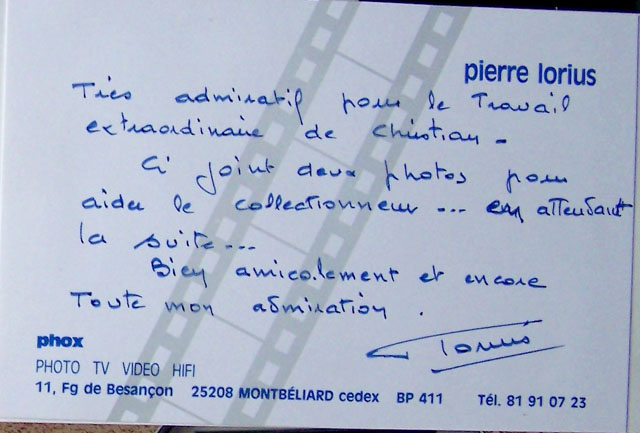 pierre lorius
Très admiratif pour le Travail
extraordinaire de Christian -
Ci joint deux photos pour
aider le collectionneur ... en attendant
la suite ...
Bien amicalement et encore
Toute mon admiration .
Lorius
phox
PHOTO TV VIDEO HIFI
11, Fg de Besançon 25208 MONTBÉLIARD cedex BP 411 Tél. 81 91 07 23